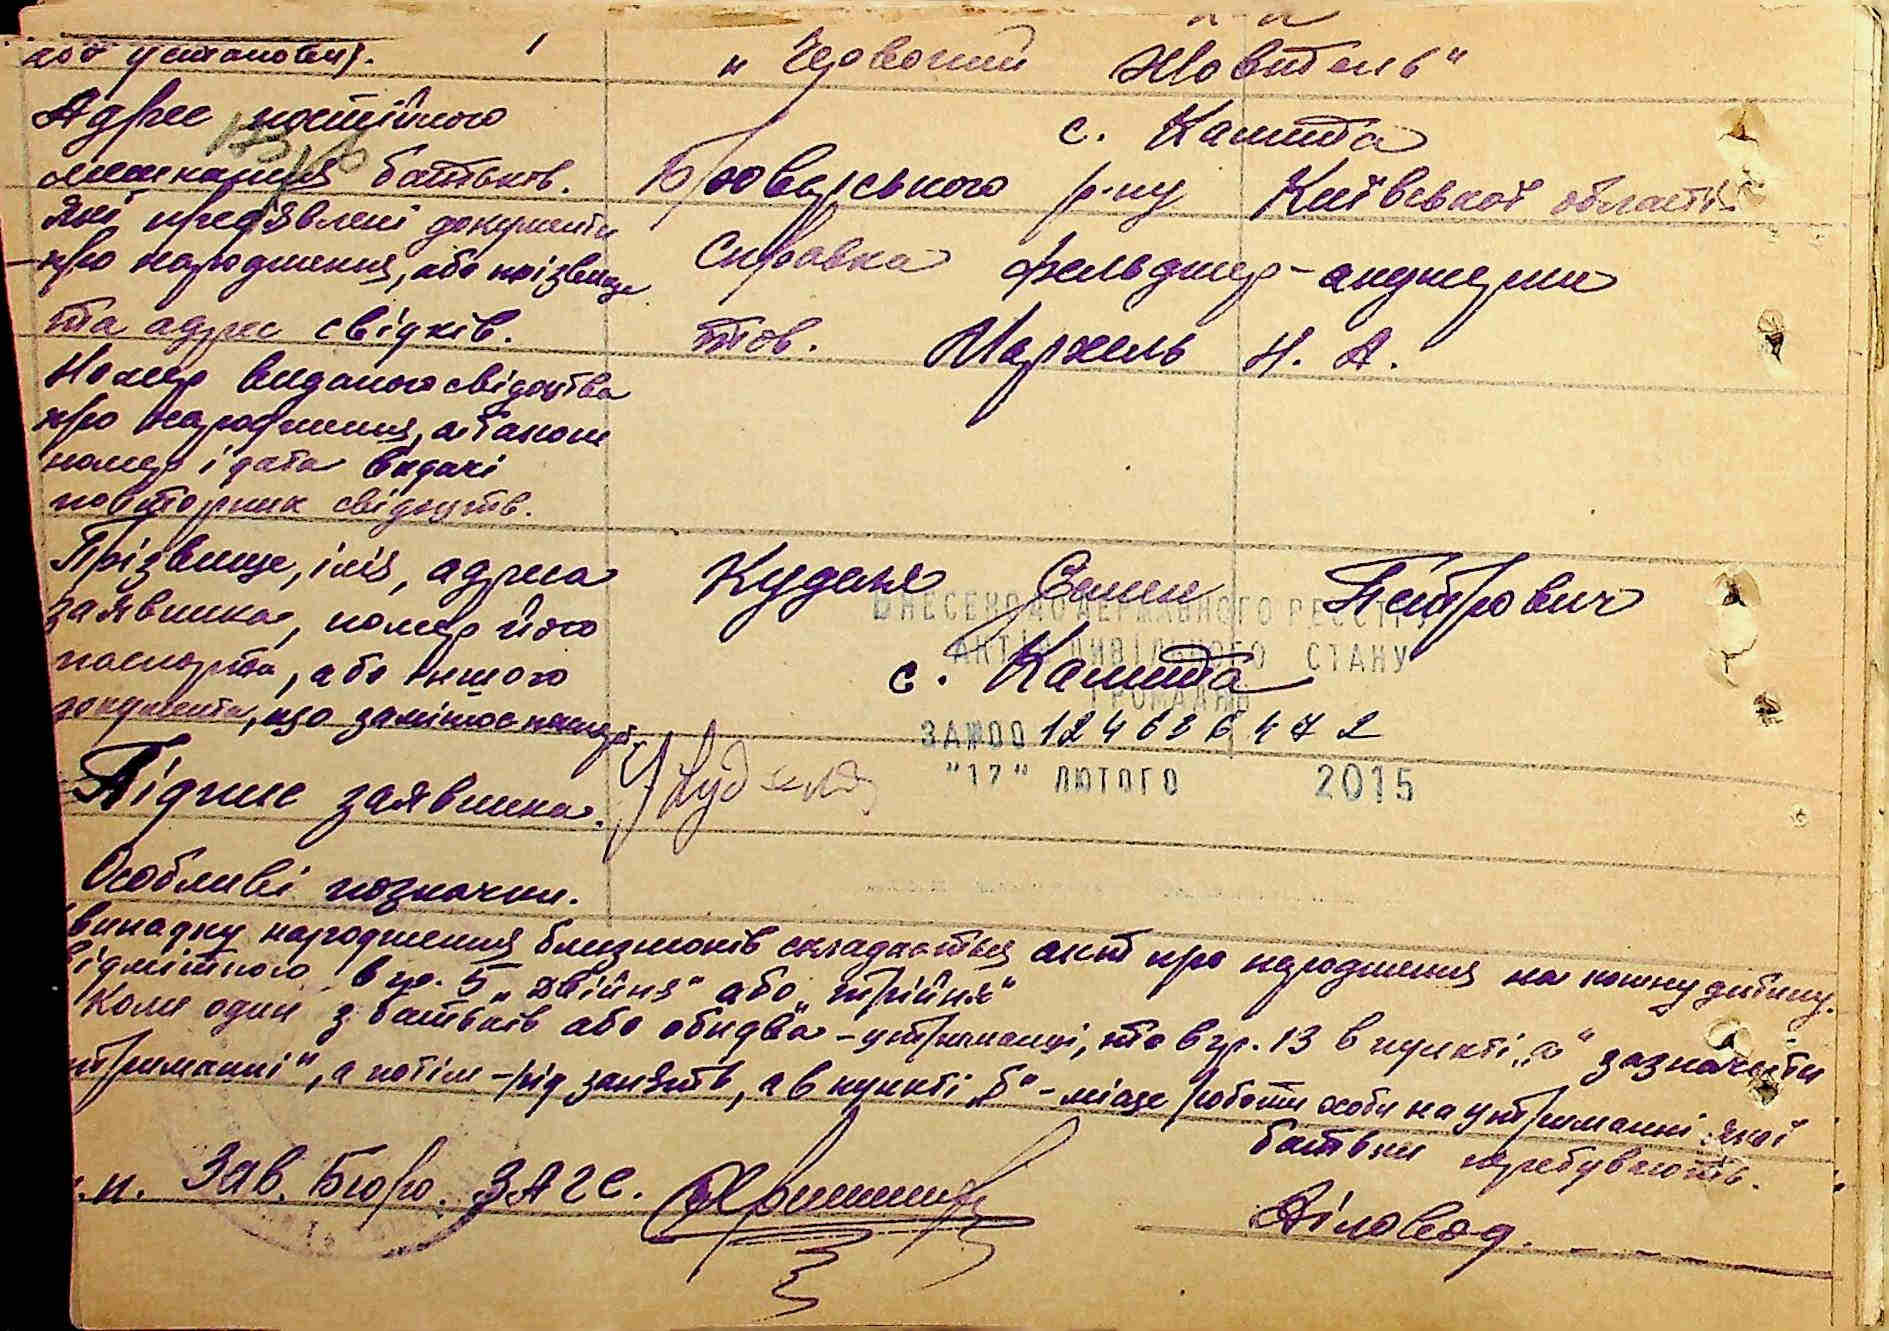 або установи).
„Червоний Жовтень“
Адрес постійного
мешкання батьків.
с. Калита
Броварського р-ну Київської області
Які пред'явлені документи
про народження, або прізвище
та адрес свідків.
Справка фельджер-акушерки
тов. Мархель Н. А.
Номер виданого свідоцтва
про народження, а також
номер і дата видачі
повторних свідоцтв.
Прізвище, ім'я, адреса
заявника, номер його
паспорта, або іншого
документа, що замінює паспорт.
Куделя Семен Петрович
с. Калита
ВНЕСЕНО ДО ДЕРЖАВНОГО РЕЄСТРУ
АКТІВ ЦИВІЛЬНОГО СТАНУ
ГРОМАДЯН
ЗА №00124626472
"17" ЛЮТОГО 2015
Підпис заявника.
Особливі позначки.
випадку народження близнюків складається акт про народження на кожну дитину.
відміткою в гр. 5 „двійня“ або „трійня“
Коли один з батьків або обидва – утриманці, то в гр. 13 в пункті „а“ зазначити
утриманні“, а потім – рід занять, а в пункті „б“ – місце роботи особи на утриманні якої
батьки перебувають.
п. Зав. Бюро. ЗАГС.
Діловод.